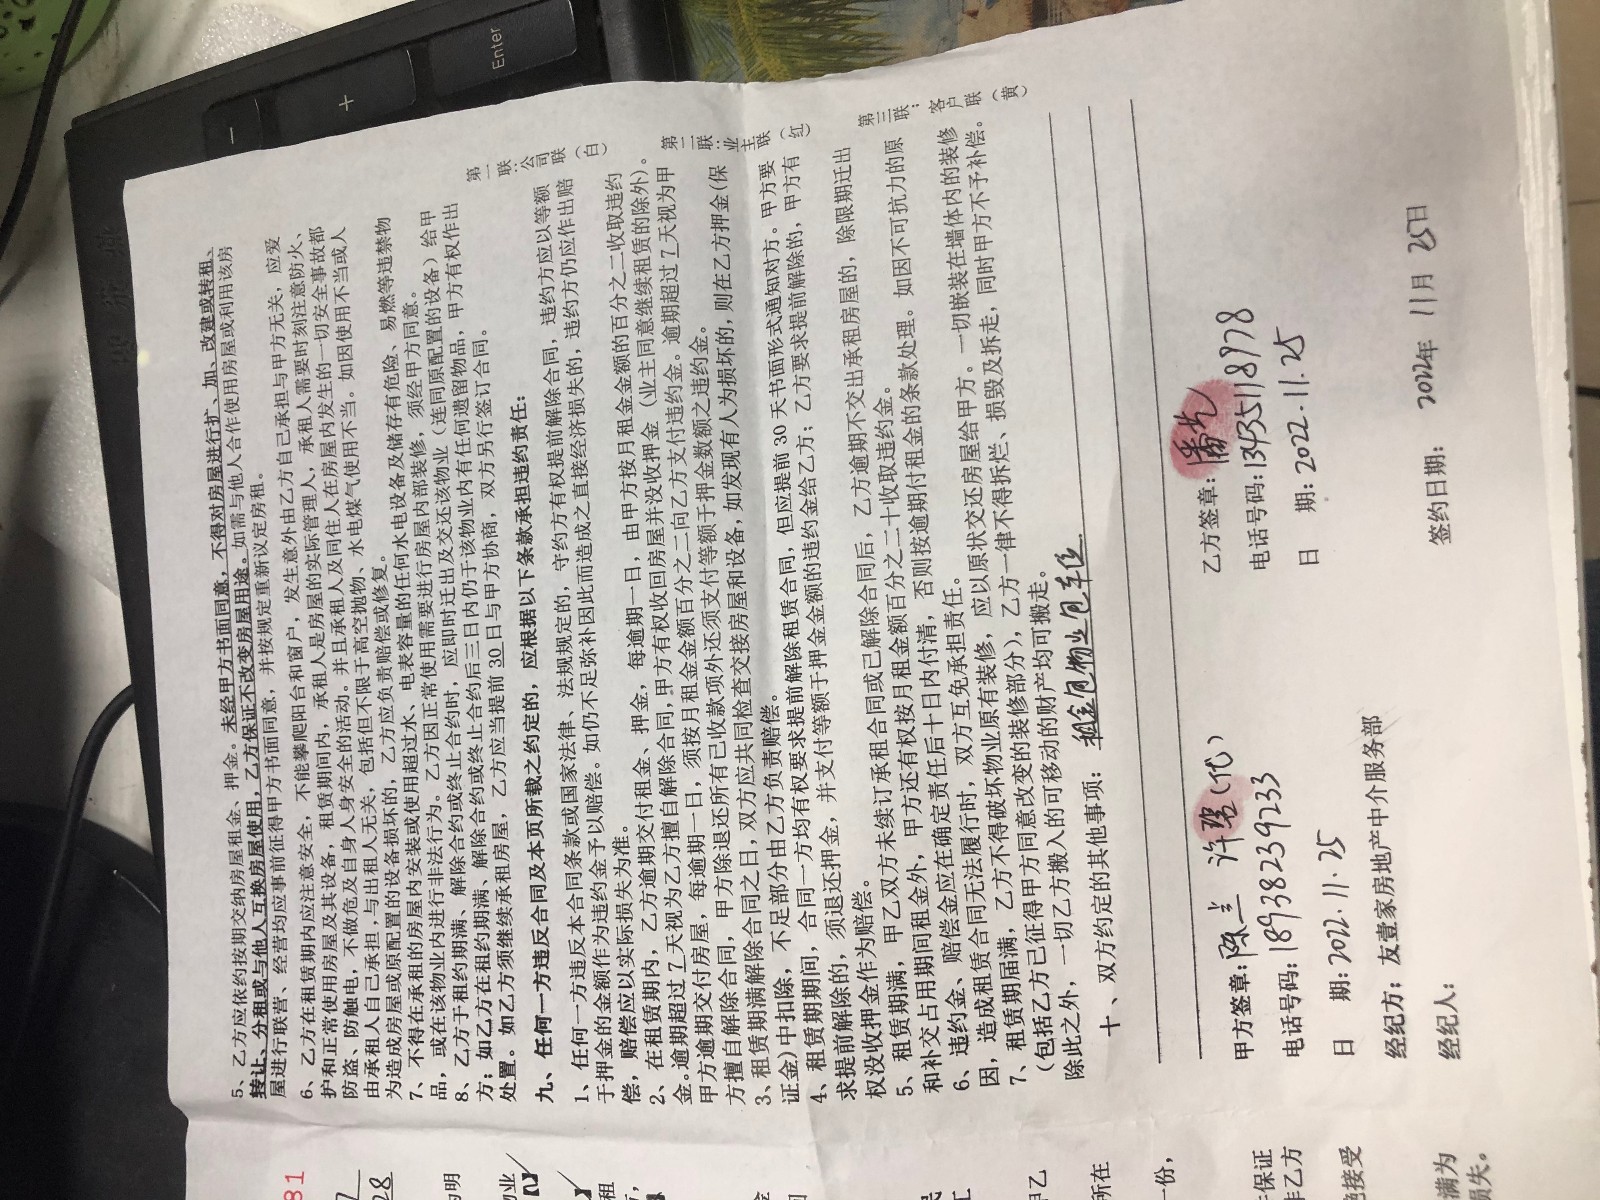 5、乙方应依约按期交纳房屋租金、押金。未经甲方书面同意，不得对房屋进行扩、加、改建或转租、
转让、分租或与他人互换房屋使用，乙方保证不改变房屋用途。如需与他人合作使用房屋或利用该房
屋进行联营、经营均应事前征得甲方书面同意，并按规定重新议定房租。
6、乙方在租赁期内应注意安全，不能攀爬阳台和窗户，发生意外由乙方自己承担与甲方无关，应爱
护和正常使用房屋及其设备，租赁期间内，承租人是房屋的实际管理人，承租人需要时刻注意防火、
防盗、防触电，不做危及自身人身安全的活动。并且承租人及同住人在房屋内发生的一切安全事故都
由承租人自己承担，与出租人无关，包括但不限于高空抛物、水电煤气使用不当。如因使用不当或人
为造成房屋或原配置的设备损坏的，乙方应负责赔偿或修复。
7、不得在承租的房屋内安装或使用超过水、电表容量的任何水电设备及储存有危险、易燃等违禁物
品，或在该物业内进行非法行为。乙方因正常使用需要进行房屋内部装修，须经甲方同意。
8、乙方于租约期满、解除合约或终止合约时，应即时迁出及交还该物业（连同原配置的设备）给甲
方；如乙方在租约期满、解除合约或终止合约后三日内仍于该物业内有任何遗留物品，甲方有权作出
处置。如乙方须继续承租房屋，乙方应当提前 30 日与甲方协商，双方另行签订合同。
九、任何一方违反合同及本页所载之约定的，应根据以下条款承担违约责任：
1、任何一方违反本合同条款或国家法律、法规规定的，守约方有权提前解除合同，违约方应以等额
于押金的金额作为违约金予以赔偿。如仍不足弥补因此而造成之直接经济损失的，违约方仍应作出赔
偿，赔偿应以实际损失为准。
2、在租赁期内，乙方逾期交付租金、押金，每逾期一日，由甲方按月租金金额的百分之二收取违约
金。逾期超过 7 天视为乙方擅自解除合同，甲方有权收回房屋并没收押金（业主同意继续租赁的除外）。
甲方逾期交付房屋，每逾期一日，须按月租金金额百分之二向乙方支付违约金。逾期超过 7 天视为甲
方擅自解除合同，甲方除退还所有已收款项外还须支付等额于押金数额之违约金。
3、租赁期满解除合同之日，双方应共同检查交接房屋和设备，如发现有人为损坏的，则在乙方押金(保
证金)中扣除，不足部分由乙方负责赔偿。
4、租赁期期间，合同一方均有权要求提前解除租赁合同，但应提前 30 天书面形式通知对方。甲方要
求提前解除的，须退还押金，并支付等额于押金金额的违约金给乙方；乙方要求提前解除的，甲方有
权没收押金作为赔偿。
5、租赁期满，甲乙双方未续订承租合同或已解除合同后，乙方逾期不交出承租房屋的，除限期迁出
和补交占用期间租金外，甲方还有权按月租金额百分之二十收取违约金。
6、违约金、赔偿金应在确定责任后十日内付清，否则按逾期付租金的条款处理。如因不可抗力的原
因，造成租赁合同无法履行时，双方互免承担责任。
7、租赁期届满，乙方不得破坏物业原有装修，应以原状交还房屋给甲方。一切嵌装在墙体内的装修
（包括乙方已征得甲方同意改变的装修部分），乙方一律不得拆烂、损毁及拆走，同时甲方不予补偿。
除此之外，一切乙方搬入的可移动的财产均可搬走。
十、双方约定的其他事项：租金包物业包车位
第一联：公司联（白）
第二联：业主联（红）
第三联：客户联（黄）
甲方签章：陈兰 许 （代）
电话号码：18938239233
日 期：2022.11.25
乙方签章：潘
电话号码：13435118978
日 期：2022.11.25
经纪方：友壹家房地产中介服务部
经纪人：
签约日期： 2022年 11月 25日
81
28
Enter
+